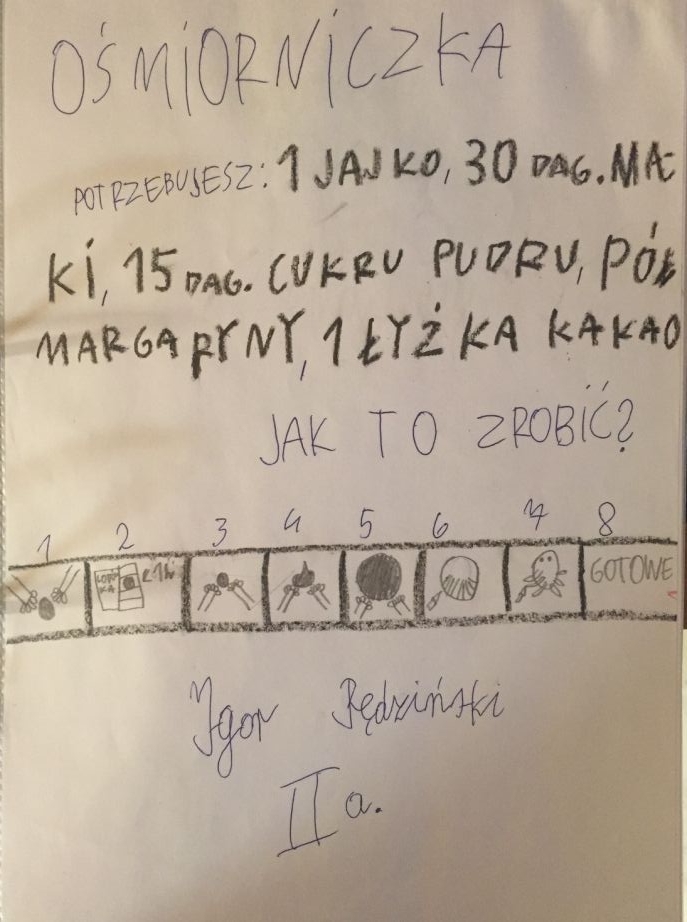 OŚMIORNICZKA
POTRZEBUJESZ: 1 JAJKO, 30 DAG. MĄ-
KI, 15 DAG. CUKRU PUDRU, PÓŁ
MARGARYNY, 1 ŁYŻKA KAKAO
JAK TO ZROBIĆ?
1 2 3 4 5 6 7 8
1h GOTOWE
Igor
II a.